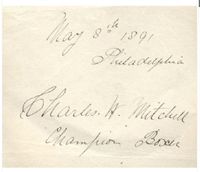 May 8th 1891
Philadelphia
Charles. H. Mitchell
Champion Boxer